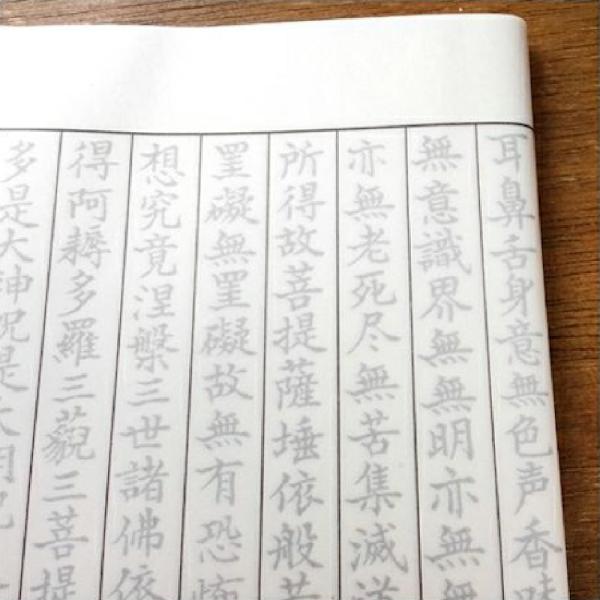 耳鼻舌身意無色声香味
無意識界無無明亦無無
亦無老死尽無苦集滅道
所得故菩提薩埵依般若
罣礙無罣礙故無有恐怖
想究竟涅槃三世諸佛依
得阿耨多羅三藐三菩提
多是大神呪是大明呪